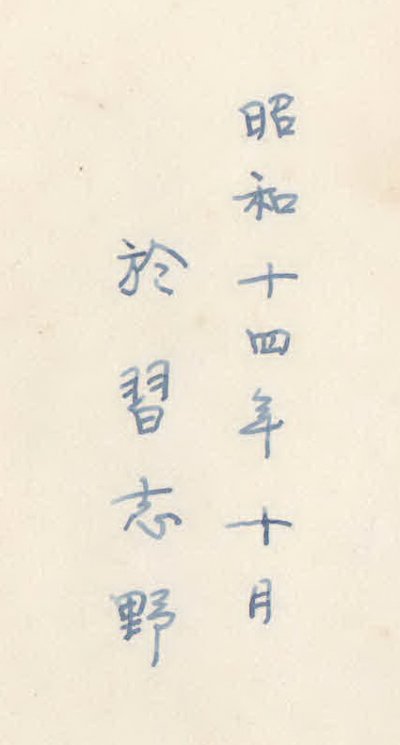 昭和十四年十月
於習志野